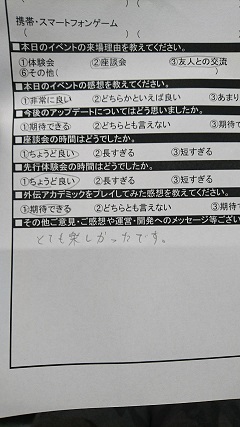 携帯・スマートフォンゲーム
( )( )(
■本日のイベントの来場理由を教えてください。
①体験会 ②座談会 ③友人との交流
⑥その他(
■本日のイベントの感想を教えてください。
①非常に良い ②どちらかといえば良い ③あまり
■今後のアップデートについてはどう思いましたか。
①期待できる ②どちらとも言えない ③
■座談会の時間はどうでしたか。
①ちょうど良い ②長すぎる ③短すぎる
■先行体験会の時間はどうでしたか。
①ちょうど良い ②長すぎる ③短すぎる
■外伝アカデミックをプレイしてみた感想を教えてください。
①期待できる ②どちらとも言えない ③期
■その他ご意見・ご感想や運営・開発へのメッセージ等ござい
とても楽しかったです。